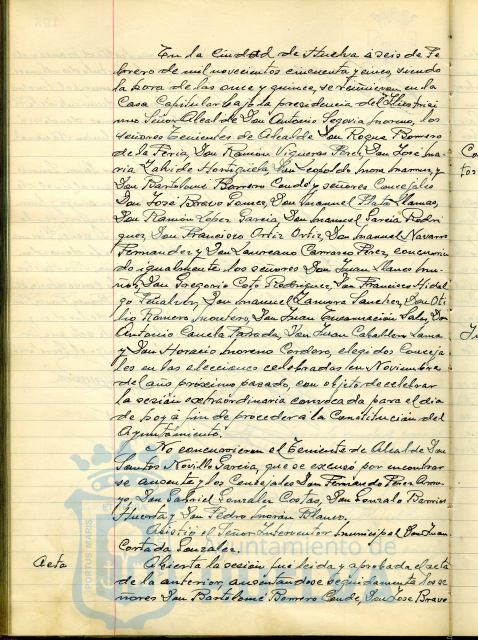 En la Ciudad de Huelva a seis de Fe
brero de mil novecientos cincuenta y cinco, siendo
la hora de las once y quince, se reunieron en la
Casa Capitular bajo la presidencia del Ilustrisi
mo Señor Alcalde Don Antonio Segovia Moreno, los
señores Tenientes de Alcalde Don Roque Borrero
de la Feria, Don Ramón Vigueras Pérez, Don José Ma
ria Don Leopoldo y
Don Bartolomé Borrero Conde y señores Concejales
Don José Bravo Ponce, Don Manuel Plata Llamas,
Don Ramón López García, Don Manuel García Rodri
guez, Don Francisco Ortiz Ortiz, Don Manuel Navarro
Fernandez y Don Laureano Carrasco Pérez, concurrien
do igualmente los señores Don Juan Llanes Mu
ñoz, Don Gregorio Rodriguez, Don Francisco Hidal
go Peñalver, Don Manuel Zamora Sanchez, Don Oti
lio Romero Montero, Don Juan Encarnación Don
Antonio Canela Parada, Don Juan Caballero Lama
y Don Horacio Moreno Cordero, elegidos Conceja
les en las elecciones celebradas en Noviembre
del año próximo pasado, con objeto de celebrar
la sesión extraordinaria convocada para el día
de hoy a fin de proceder a la Constitución del
Ayuntamiento.
No concurrieron el Teniente de Alcalde Don
Santos Novillo García, que se excusó por encontrar
se ausente y los Concejales Don Fernando Pérez Arro
yo, Don Gabriel González Costas, Don Gonzalo Barrios
Huerta y Don Pedro Morán Blanco.
Asistió el Señor Interventor municipal Don Juan
Cortada González.
Acta
Abierta la sesión fué leida y aprobada el acta
de la anterior, ausentandose seguidamente los se
ñores Don Bartolomé Borrero Conde, Don José Bravo
PORTUS MARIS
Ayuntamiento de